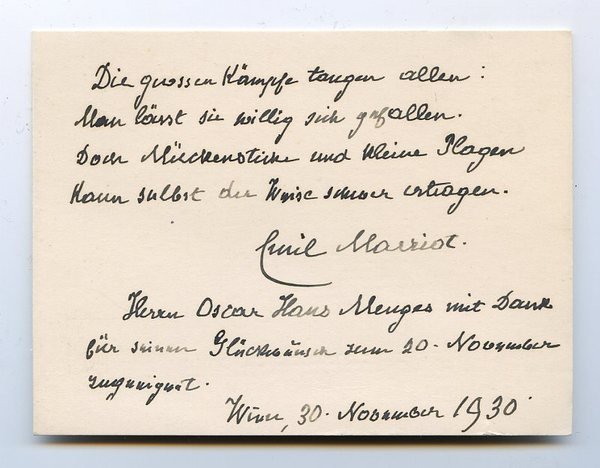 Die grossen Kämpfe taugen allen:
Man lässt sie willig sich gefallen.
Doch Mückenstiche und kleine Plagen
Kann selbst der Weise schwer ertragen.
Emil Marriot.
Herrn Oscar Hans Menges mit Dank
für seinen Glückwunsch zum 20. November
zugeeignet.
Wien, 30. November 1930